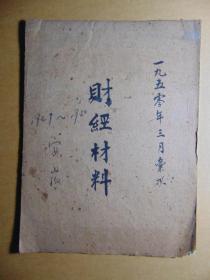 一九五零年三月彙水
財經材料
1949～1950